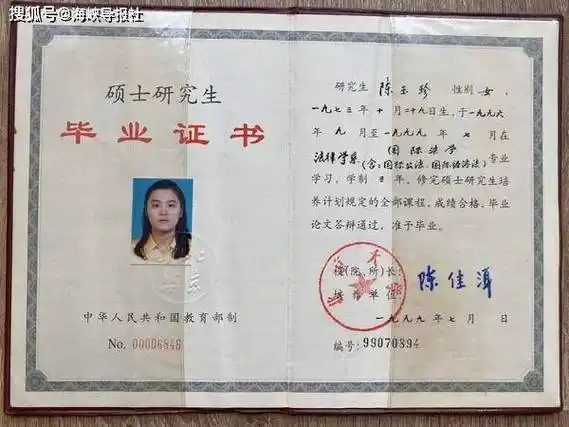 搜狐号@海峡导报社
硕士研究生
毕业证书
中华人民共和国教育部制
No. 00006846
研究生 陈玉珍 性别 女,
一九七三年十月二十九日生,于一九九六
年九月至一九九九年七月在
法律学系 国际法学
(含:国际公法、国际经济法) 专业
学习,学制 三 年,修完硕士研究生培
养计划规定的全部课程,成绩合格,毕业
论文答辩通过,准予毕业。
校(院、所)长: 陈佳洱
培养单位:
一九九九年七月 日
编号: 99070894